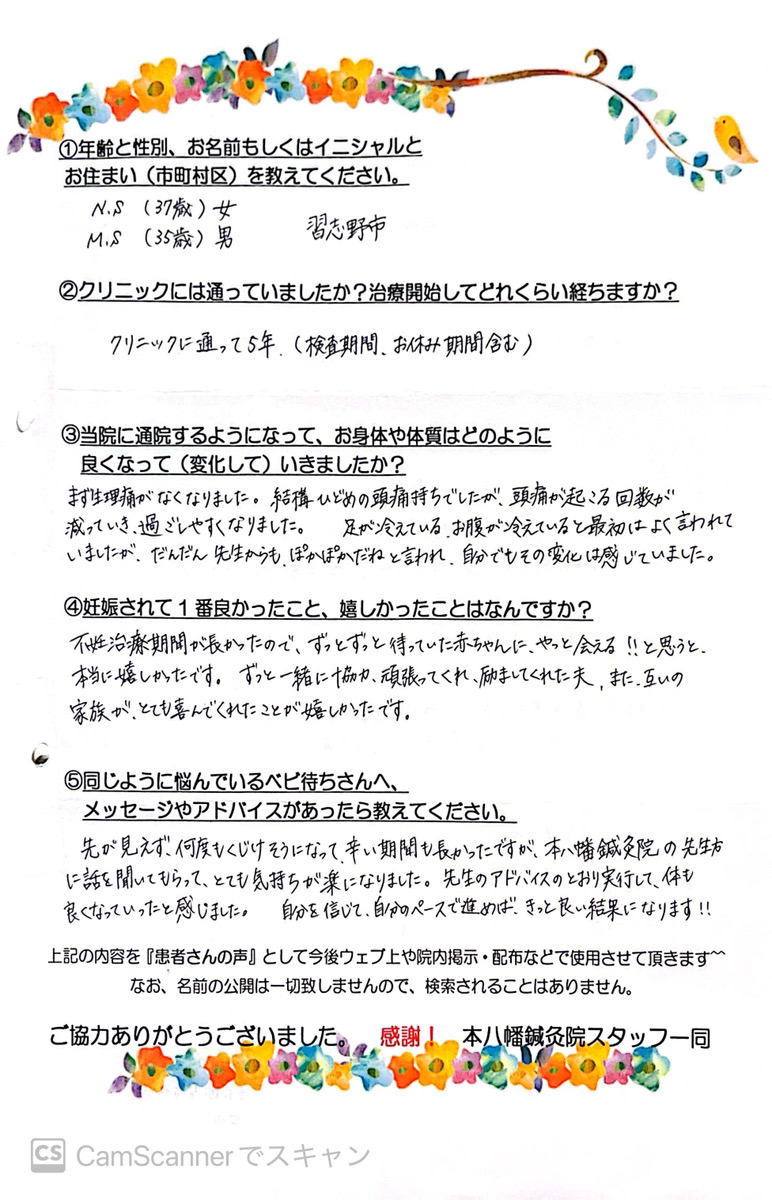 ①年齢と性別、お名前もしくはイニシャルと
お住まい（市町村区）を教えてください。
N.S （37歳）女
M.S （35歳）男　習志野市
②クリニックには通っていましたか？治療開始してどれくらい経ちますか？
クリニックに通って5年.（検査期間、お休み期間含む）
③当院に通院するようになって、お身体や体質はどのように
良くなって（変化して）いきましたか？
まず生理痛がなくなりました。結構ひどめの頭痛持ちでしたが、頭痛が起こる回数が
減っていき、過ごしやすくなりました。　足が冷えている、お腹が冷えていると最初はよく言われて
いましたが、だんだん先生からも、ぽかぽかだねと言われ、自分でもその変化は感じていました。
④妊娠されて１番良かったこと、嬉しかったことはなんですか？
不妊治療期間が長かったので、ずっとずっと待っていた赤ちゃんに、やっと会える!!と思うと、
本当に嬉しかったです。ずっと一緒に協力、頑張ってくれ、励ましてくれた夫、また、互いの
家族が、とても喜んでくれたことが嬉しかったです。
⑤同じように悩んでいるベビ待ちさんへ、
メッセージやアドバイスがあったら教えてください。
先が見えず、何度もくじけそうになって、辛い期間も長かったですが、本八幡鍼灸院の先生方
に話を聞いてもらって、とても気持ちが楽になりました。先生のアドバイスのとおり実行して、体も
良くなっていったと感じました。　自分を信じて、自分のペースで進めば、きっと良い結果になります!!
上記の内容を『患者さんの声』として今後ウェブ上や院内掲示・配布などで使用させて頂きます^^
なお、名前の公開は一切致しませんので、検索されることはありません。
ご協力ありがとうございました。　感謝！　本八幡鍼灸院スタッフ一同
CS CamScannerでスキャン